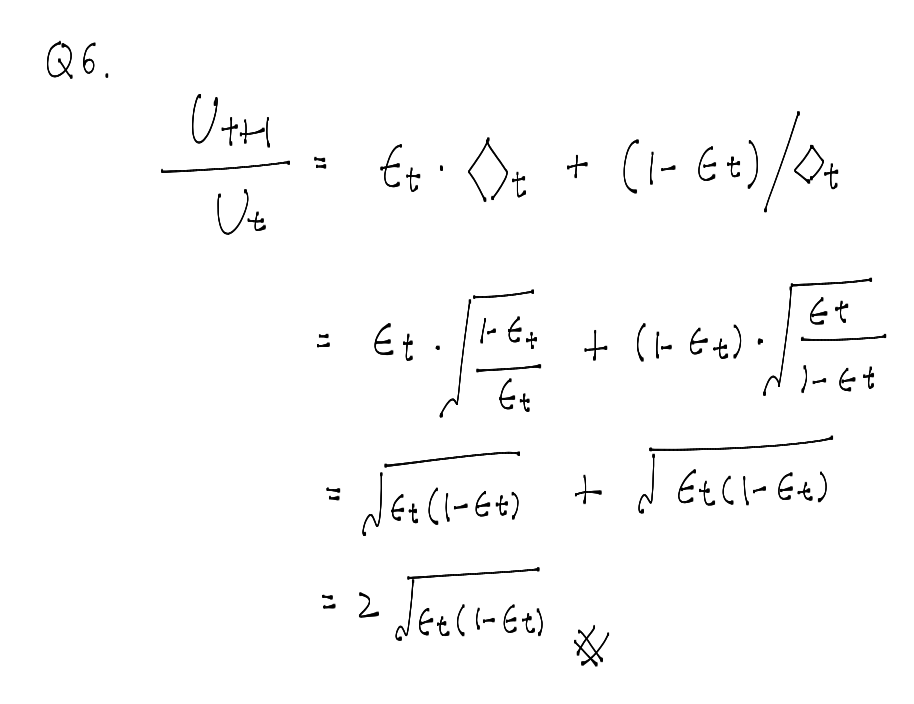 Q6.
U_{t+1} / U_t = ϵ_t · ◇_t + (1 - ϵ_t) / ◇_t
= ϵ_t · √((1 - ϵ_t) / ϵ_t) + (1 - ϵ_t) · √(ϵ_t / (1 - ϵ_t))
= √(ϵ_t (1 - ϵ_t)) + √(ϵ_t (1 - ϵ_t))
= 2 √(ϵ_t (1 - ϵ_t))